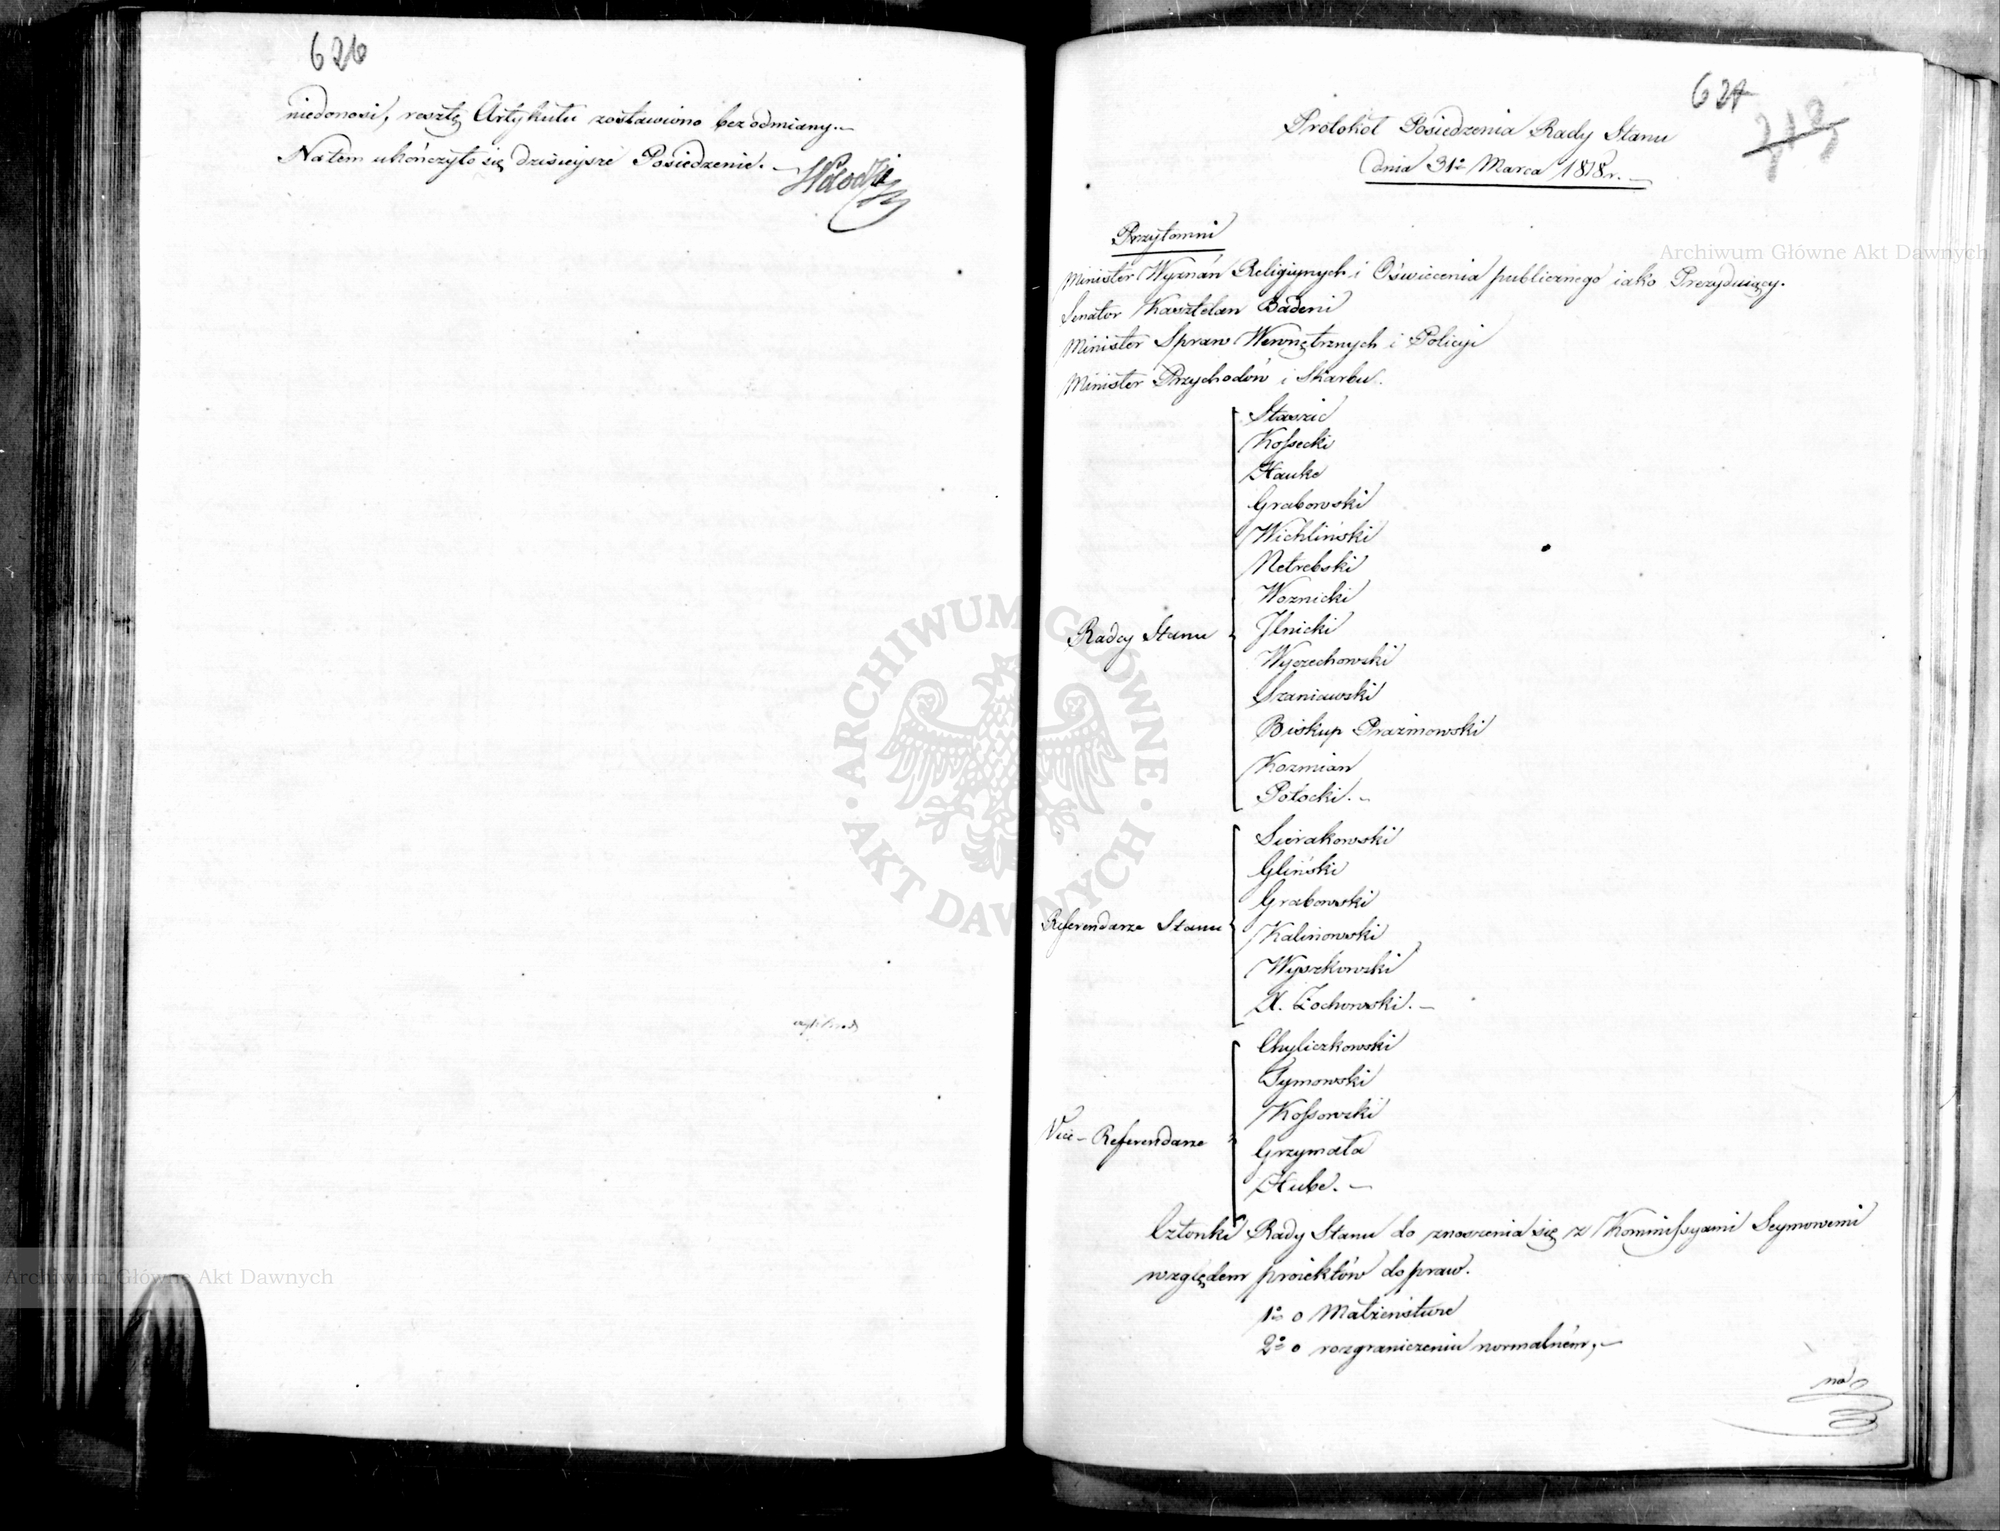 626
niedonosi, resztę Artykułu zostawiono bez odmiany.—
Na tem ukończyło się dzisieysze Posiedzenie.—
627
Protokół Posiedzenia Rady Stanu
dnia 31º Marca 1818r.—
Przytomni
Minister Wyznań Religiynych i Oświecenia publicznego iako Prezyduiący.
Senator Kasztelan Badeni
Minister Spraw Wewnętrznych i Policyi
Minister Przychodów i Skarbu.
Radcy Stanu
Staszic
Kossecki
Hauke
Grabowski
Wichliński
Netrebski
Woznicki
Ilnicki
Wyczechowski
Szaniawski
Biskup Prażmowski
Kozmian
Potocki.—
Referendarze Stanu
Sierakowski
Gliński
Grabowski
Kalinowski
Wyszkowski
X. Żochowski.—
Vice-Referendarze
Chyliczkowski
Tymowski
Kossowski
Grzymała
Hube.—
Członki Rady Stanu do znoszenia się z Kommissyami Seymowemi
względem proiektów do praw.
1º o Małżeństwie
2º o rozgraniczeniu normalném,—
na
Archiwum Główne Akt Dawnych
Archiwum Główne Akt Dawnych
ARCHIWUM GŁÓWNE
AKT DAWNYCH